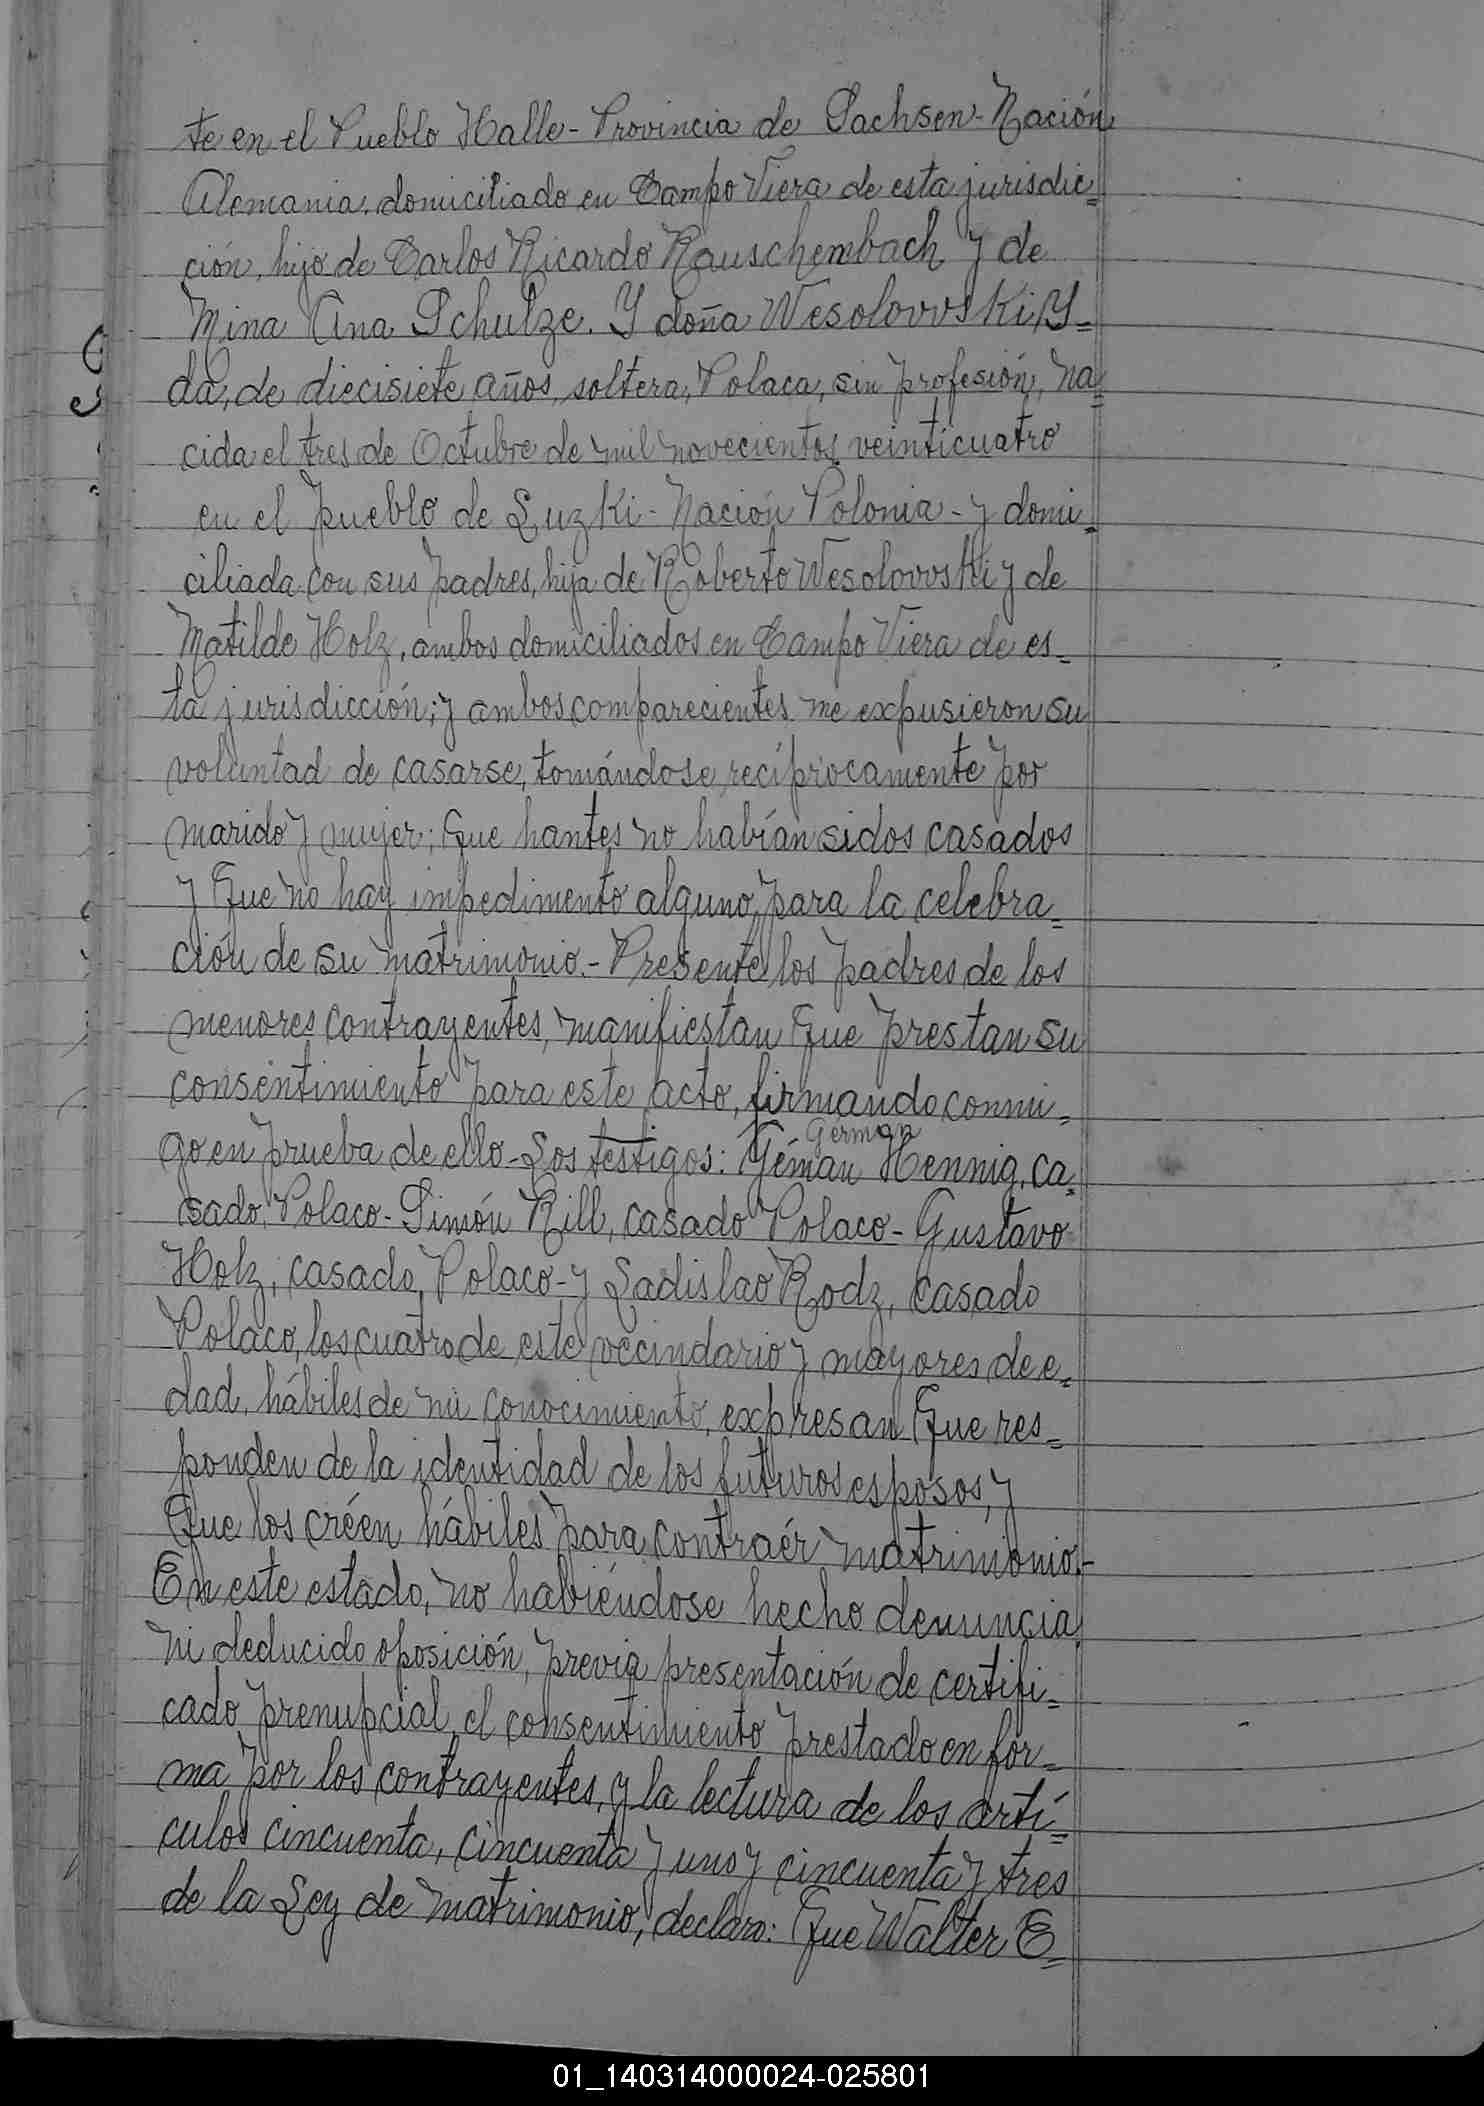 te en el Pueblo Halle - Provincia de Sachsen - Nación
Alemania, domiciliado en Campo Viera de esta jurisdic=
ción, hijo de Carlos Ricardo Rauschembach y de
Mina Ana Schulze. Y doña Wesolovvski, Y=
da, de diecisiete años, soltera, Polaca, sin profesión, na=
cida el tres de Octubre de mil novecientos veinticuatro
en el pueblo de Luzki - Nación Polonia - y domi=
ciliada con sus padres, hija de Roberto Wesolovvski y de
Matilde Holz, ambos domiciliados en Campo Viera de es=
ta jurisdicción; y ambos comparecientes me expusieron su
voluntad de casarse, tomándose recíprocamente por
marido y mujer; Que hantes no habían sidos casados
y Que no hay impedimento alguno para la celebra=
ción de su matrimonio. - Presente los padres de los
menores contrayentes, manifiestan Que prestan su
consentimiento para este acto, firmando conmi=
German
go en prueba de ello - Los testigos: Géman Hennig, ca=
sado, Polaco - Simón Rill, casado Polaco - Gustavo
Holz, casado, Polaco - y Ladislao Rodz, casado
Polaco, los cuatro de este vecindario y mayores de e=
dad, hábiles de mi conocimiento, expresan Que res=
ponden de la identidad de los futuros esposos, y
Que los créen hábiles para contraér matrimonio. -
En este estado, no habiéndose hecho denuncia
ni deducido oposición, previa presentación de certifi=
cado prenupcial, el consentimiento prestado en for=
ma por los contrayentes, y la lectura de los artí=
culos cincuenta, cincuenta y uno y cincuenta y tres
de la Ley de Matrimonio, declaro: Que Walter E=
01_140314000024-025801